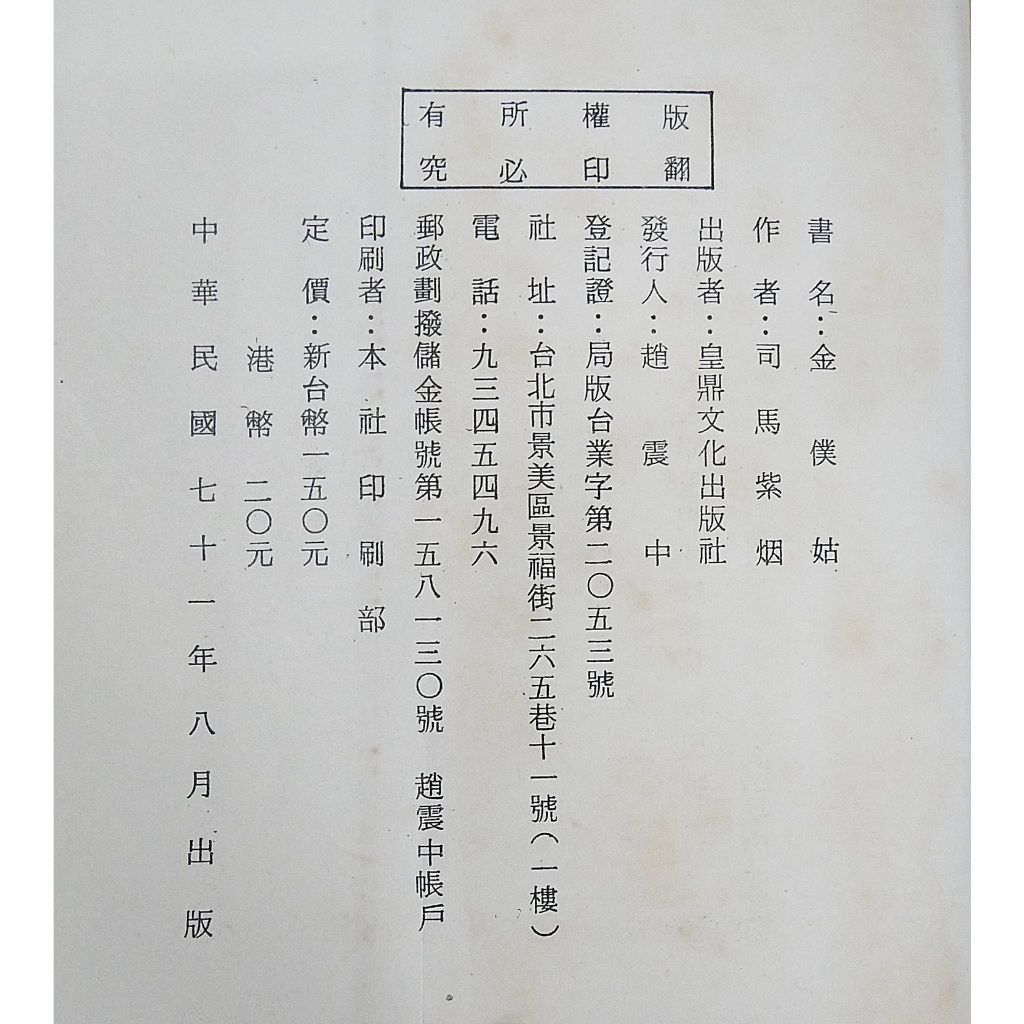 版權所有
翻印必究
書名：金僕姑
作者：司馬紫烟
出版者：皇鼎文化出版社
發行人：趙震中
登記證：局版台業字第二〇五三號
社址：台北市景美區景福街二六五巷十一號（一樓）
電話：九三四五四九六
郵政劃撥儲金帳號第一五八一三〇號　趙震中帳戶
印刷者：本社印刷部
定價：新台幣一五〇元
港幣二〇元
中華民國七十一年八月出版